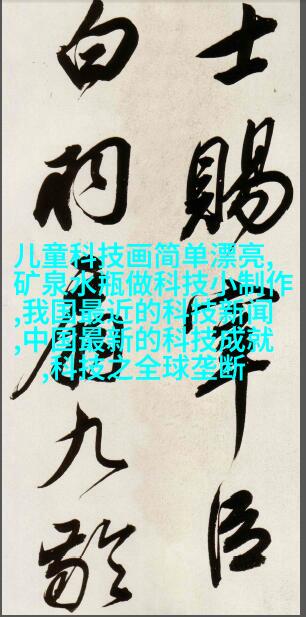 士賜宰臣
白羽扇九齡
儿童科技画简单漂亮,
矿泉水瓶做科技小制作
,我国最近的科技新闻
,中国最新的科技成就
,科技之全球垄断